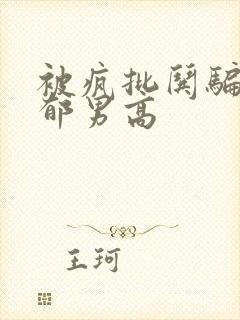 被疯批哭骗
郁男高
王珂